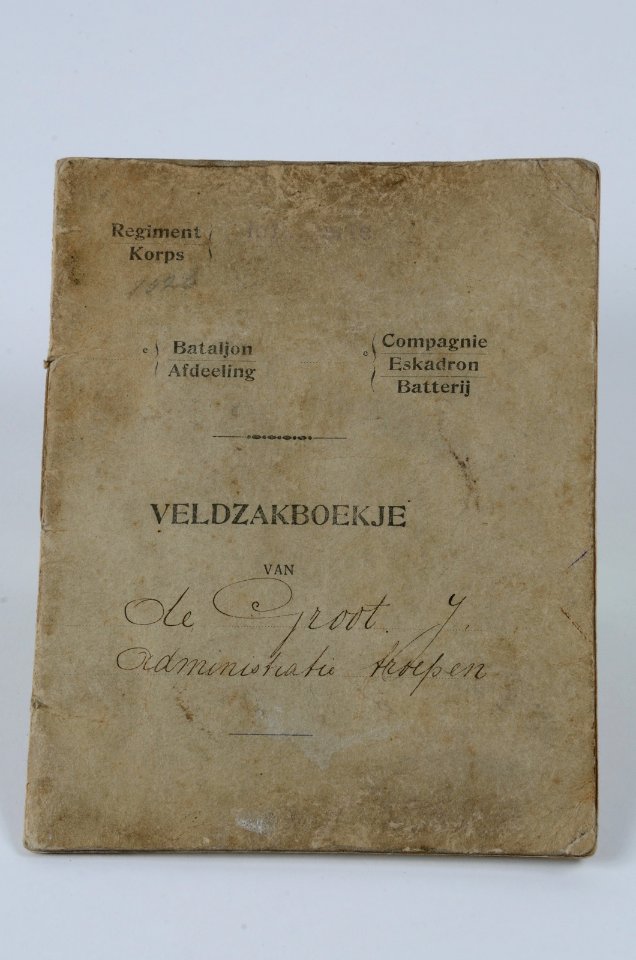 Regiment
Korps
e Bataljon
Afdeeling
e Compagnie
Eskadron
Batterij
VELDZAKBOEKJE
VAN
de Groot. J.
Administratie troepen